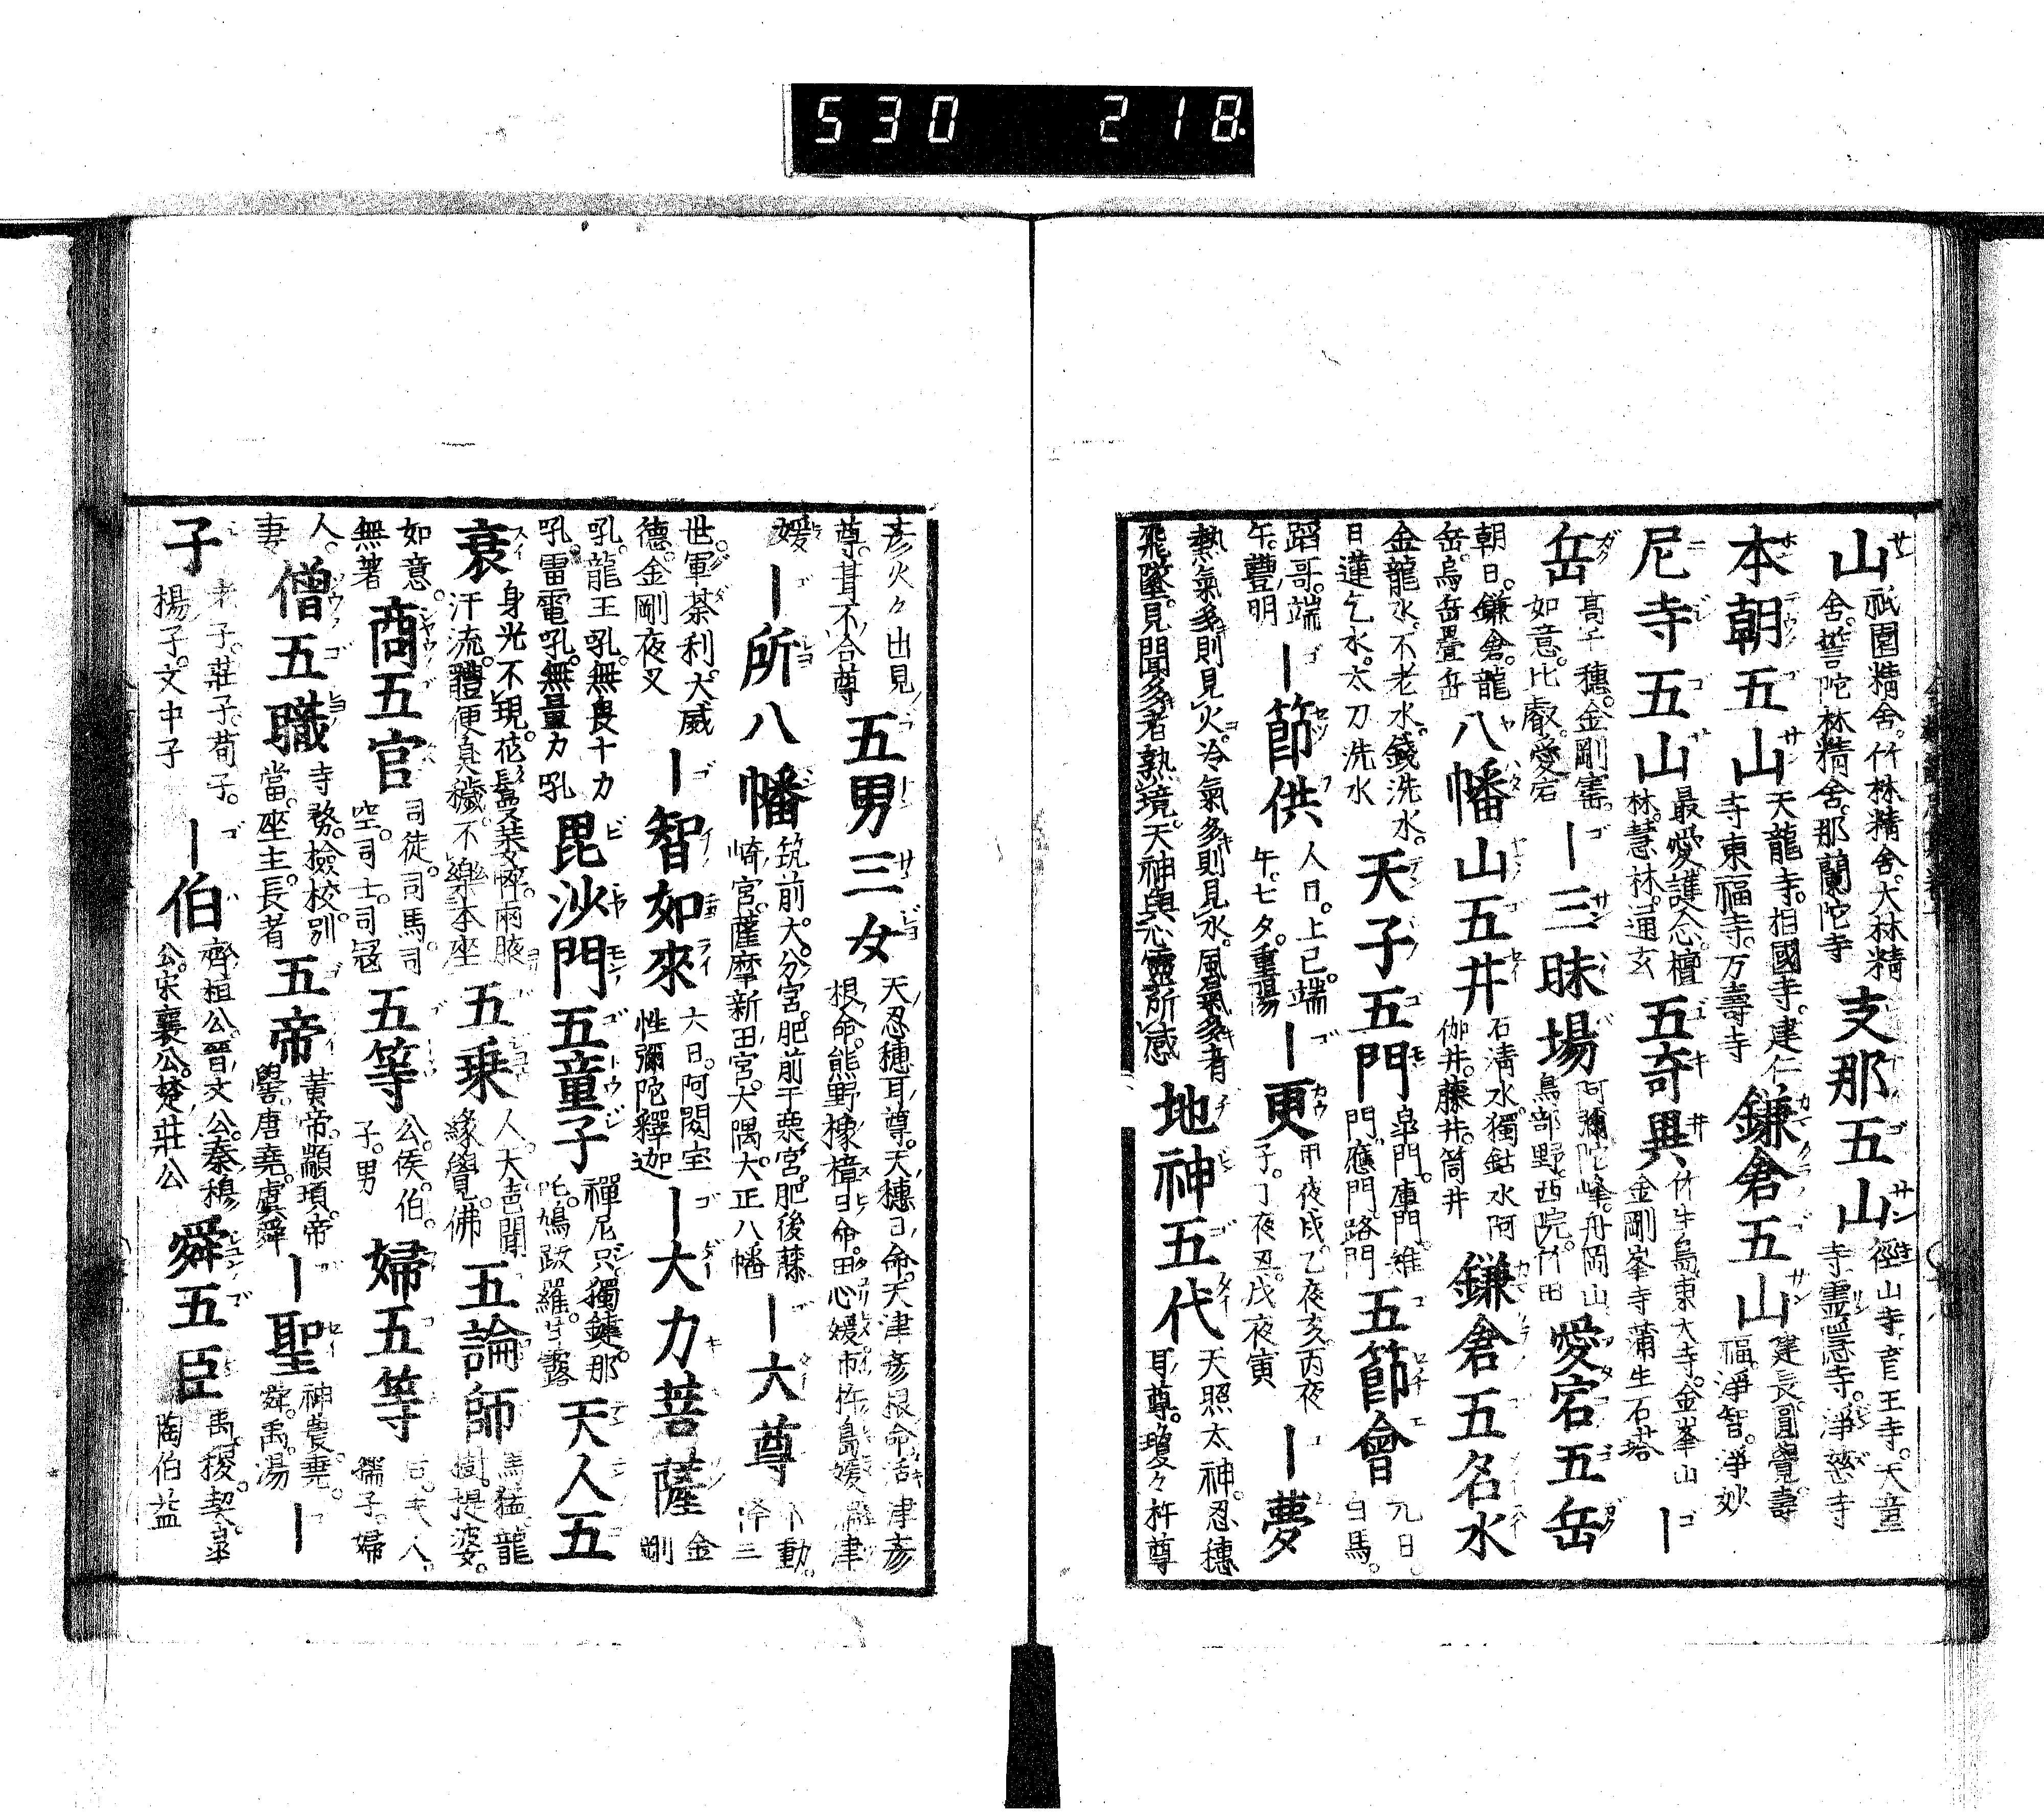 530 218.
山 祇園精舍。竹林精舍。大林精舍。誓陀林精舍。那蘭陀寺 支那五山 徑山寺。育王寺。天童寺。靈隱寺。淨慈寺
本朝五山 天龍寺。相國寺。建仁寺東福寺。万壽寺 鎌倉五山 建長。圓覺。壽福。淨智。淨妙
尼寺五山 最愛。護念。檀林。慧林。通玄 五奇異 竹生島。東大寺。金峯山金剛峯寺蒲生石塔 ー
岳 高千穗。金剛富。如意。比叡。愛宕 ー三昧場 阿彌陀峰。舟岡山鳥部野。西院。竹田 愛宕五岳
朝日。鎌倉。龍岳。烏岳疊岳 八幡山五井 石清水。獨鈷水阿伽井。藤井。筒井 鎌倉五名水
金龍水。不老水。錢洗水。日蓮乞水。太刀洗水 天子五門 皐門。庫門。雉門應門路門 五節會 元日。白馬。
蹈哥。端午。豐明 ー節供 人日。上巳。端午。七夕。重陽 ー更 甲夜戌。乙夜亥。丙夜子。丁夜丑。戊夜寅 ー夢
熱氣多則見火。冷氣多則見水。風氣多者飛墜。見聞多者熟境。天神與忩靈所感 地神五代 天照太神。忍穗耳尊。瓊々杵尊
彥火々出見尊。葺不合尊 五男三女 天忍穗耳尊。天穗日命。天津彥根命活津彥根命。熊野櫲樟日命。田心媛市杵島媛湍津
媛 ー所八幡 筑前。大分宮。肥前千栗宮。肥後藤崎宮。薩摩新田宮。大隅大正八幡 ー大尊 不動。降三
世。軍荼利。大威德。金剛夜叉 ー智如來 大日。阿閦宝性彌陀釋迦 ー大力菩薩 金剛
吼。龍王吼。無畏十力吼。雷電吼。無量力吼 毘沙門五童子 禪尼只。獨鍵。那吒。鳩跋羅。甘露 天人五
衰 身光不現。花鬘萎悴。兩腋汗流。體便臭穢。不樂本座 五乘 人。天。聲聞緣覺。佛 五論師 馬猛龍樹。提婆。
如意。無著 商五官 司徒。司馬。司空。司士。司寇 五等 公。侯。伯。子。男 婦五等 后。夫人。孺子。婦
人。妻 僧五職 寺務。撿校。別當。座主。長者 五帝 黃帝。顓頊。帝嚳。唐堯。虞舜 ー聖 神農。堯。舜。禹。湯 ー
子 老子。莊子。荀子。揚子。文中子 ー伯 齊桓公。晉文公。秦穆公。宋襄公。楚莊公 舜五臣 禹。稷。契。皐陶伯益